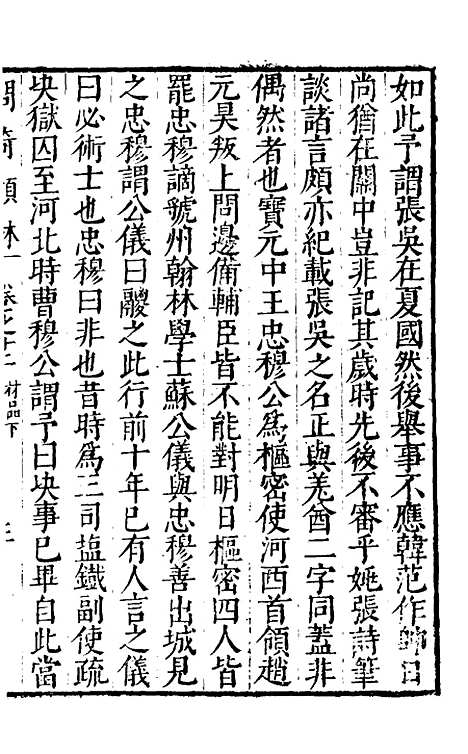 如此予謂張吳在夏國然後舉事不應韓范作帥日
尚猶在關中豈非記其歲時先後不審乎姚張詩筆
談諸言頗亦紀載張吳之名正與羗酋二字同蓋非
偶然者也寶元中王忠穆公爲樞密使河西首領趙
元昊叛上問邊備輔臣皆不能對明日樞密四人皆
罷忠穆謫虢州翰林學士蘇公儀與忠穆善出城見
之忠穆謂公儀曰鬷之此行前十年已有人言之儀
曰必術士也忠穆曰非也昔時爲三司塩鐵副使疏
决獄囚至河北時曹穆公謂予曰决事已畢自此當
卷之十二 材品下